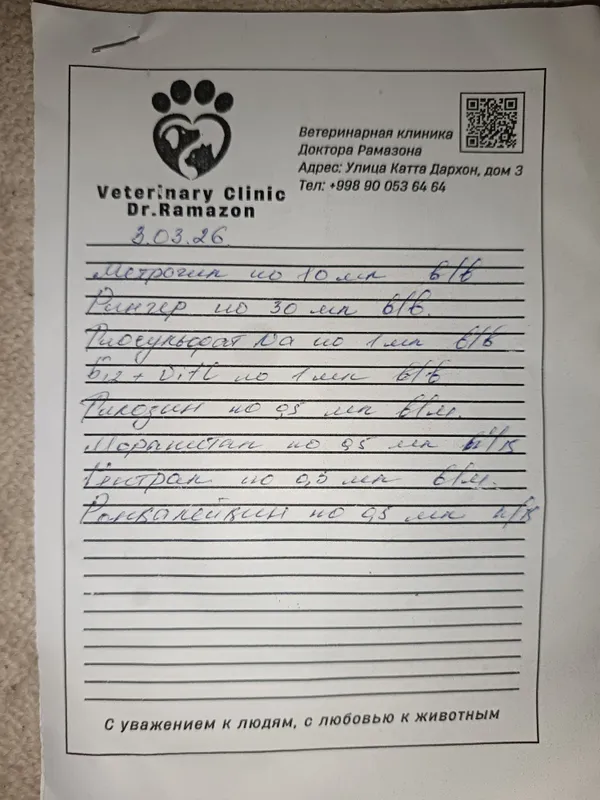 Ветеринарная клиника
Доктора Рамазона
Адрес: Улица Катта Дархон, дом 3
Тел: +998 90 053 64 64
Veterinary Clinic
Dr.Ramazon
3.03.26
Метрогил по 10 мл в/в
Рингер по 30 мл в/в.
Тиосульфат Na по 1 мл в/в
B12 + Vit C по 1 мл в/в
по 0,5 мл в/м.
по 0,5 мл п/к
по 0,5 мл в/м.
Ронколейкин по 0,5 мл п/к
С уважением к людям, с любовью к животным